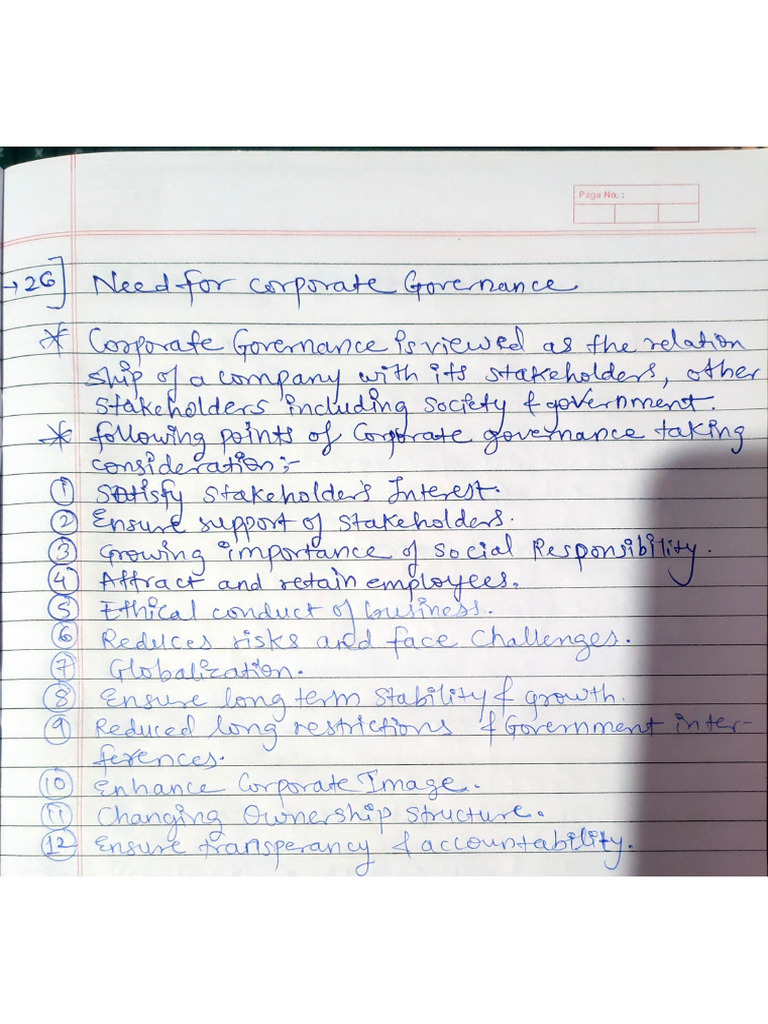 Page No. :
→ 26] Need for corporate Governance
* Corporate Governance is viewed as the relation
ship of a company with its stakeholders, other
stakeholders including society & government.
* following points of Corporate governance taking
consideration:-
① Satisfy stakeholder's Interest.
② Ensure support of stakeholders.
③ Growing importance of social Responsibility.
④ Attract and retain employees.
⑤ Ethical conduct of business.
⑥ Reduces risks and face challenges.
⑦ Globalization.
⑧ Ensure long term stability & growth.
⑨ Reduced long restrictions & Government inter-
ferences.
⑩ Enhance Corporate Image.
⑪ Changing Ownership structure.
⑫ Ensure transperancy & accountability.